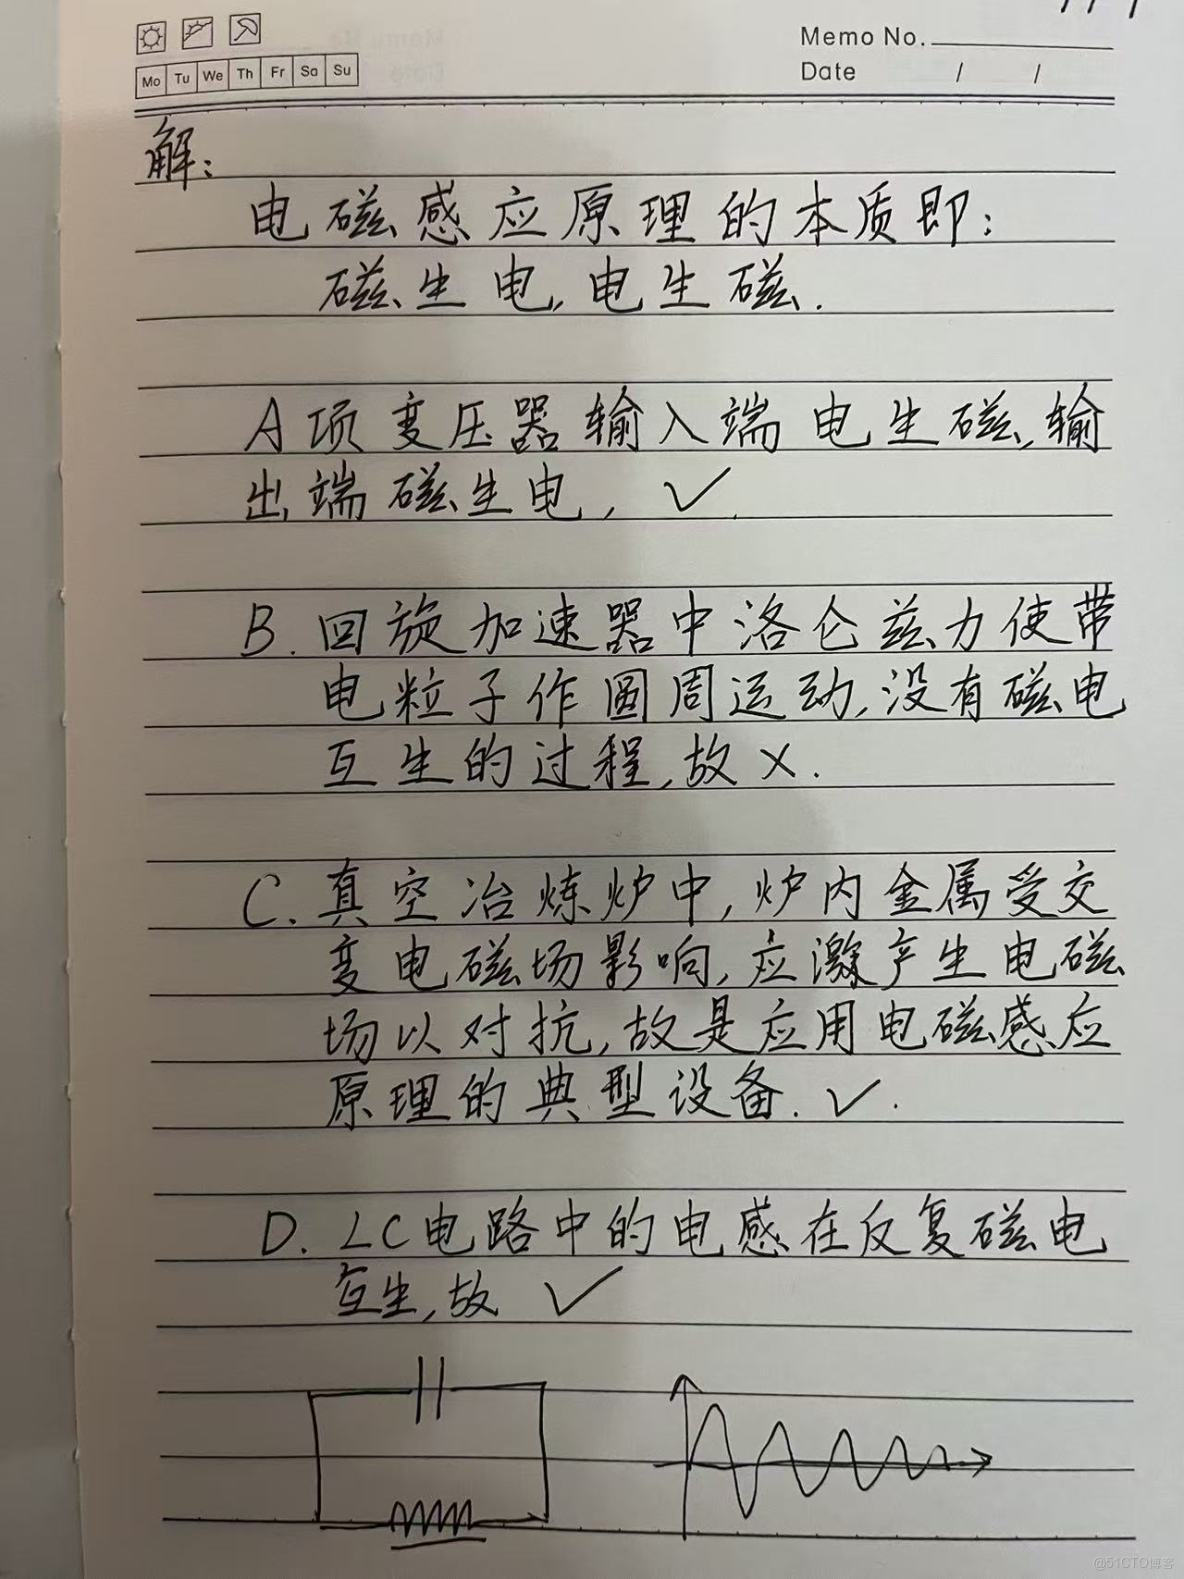 Memo No.
Mo Tu We Th Fr Sa Su
Date / /
解:
电磁感应原理的本质即:
磁生电,电生磁.
A项变压器输入端电生磁,输
出端磁生电, ✓.
B.回旋加速器中洛仑兹力使带
电粒子作圆周运动,没有磁电
互生的过程,故×.
C.真空冶炼炉中,炉内金属受交
变电磁场影响,应激产生电磁
场以对抗,故是应用电磁感应
原理的典型设备.✓.
D.LC电路中的电感在反复磁电
互生,故 ✓
@51CTO博客